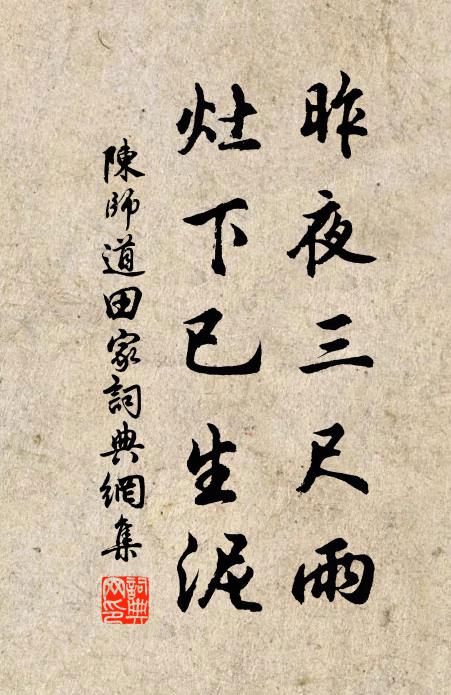 昨夜三尺雨
灶下已生泥
陳師道田家詞典網集
詞典网印